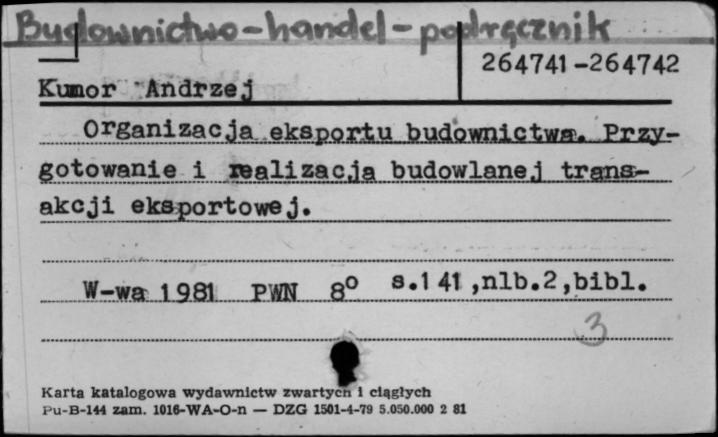 Budownictwo-handel-podręcznik
264741-264742
Kumor Andrzej
Organizacja eksportu budownictwa. Przy-
gotowanie i realizacja budowlanej trans-
akcji eksportowej.
W-wa 1981 PWN 8° s.141,nlb.2,bibl.
3
Karta katalogowa wydawnictw zwartych i ciągłych
Pu-B-144 zam. 1016-WA-O-n — DZG 1501-4-79 5.050.000 2 81